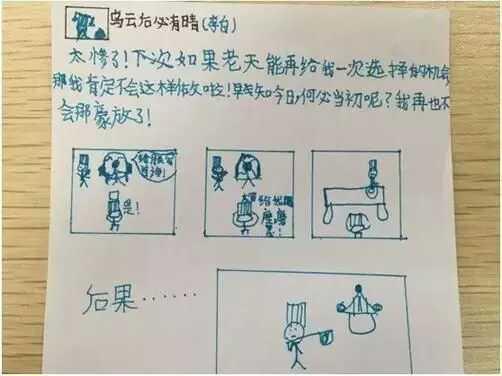 乌云后必有晴(李白)
太惨了!下次如果老天能再给我一次选择的机会
那我肯定不会这样做啦!早知今日,何必当初呢?我再也不
会那豪放了!
给朕写
是!
给我磨
墨!
后果······